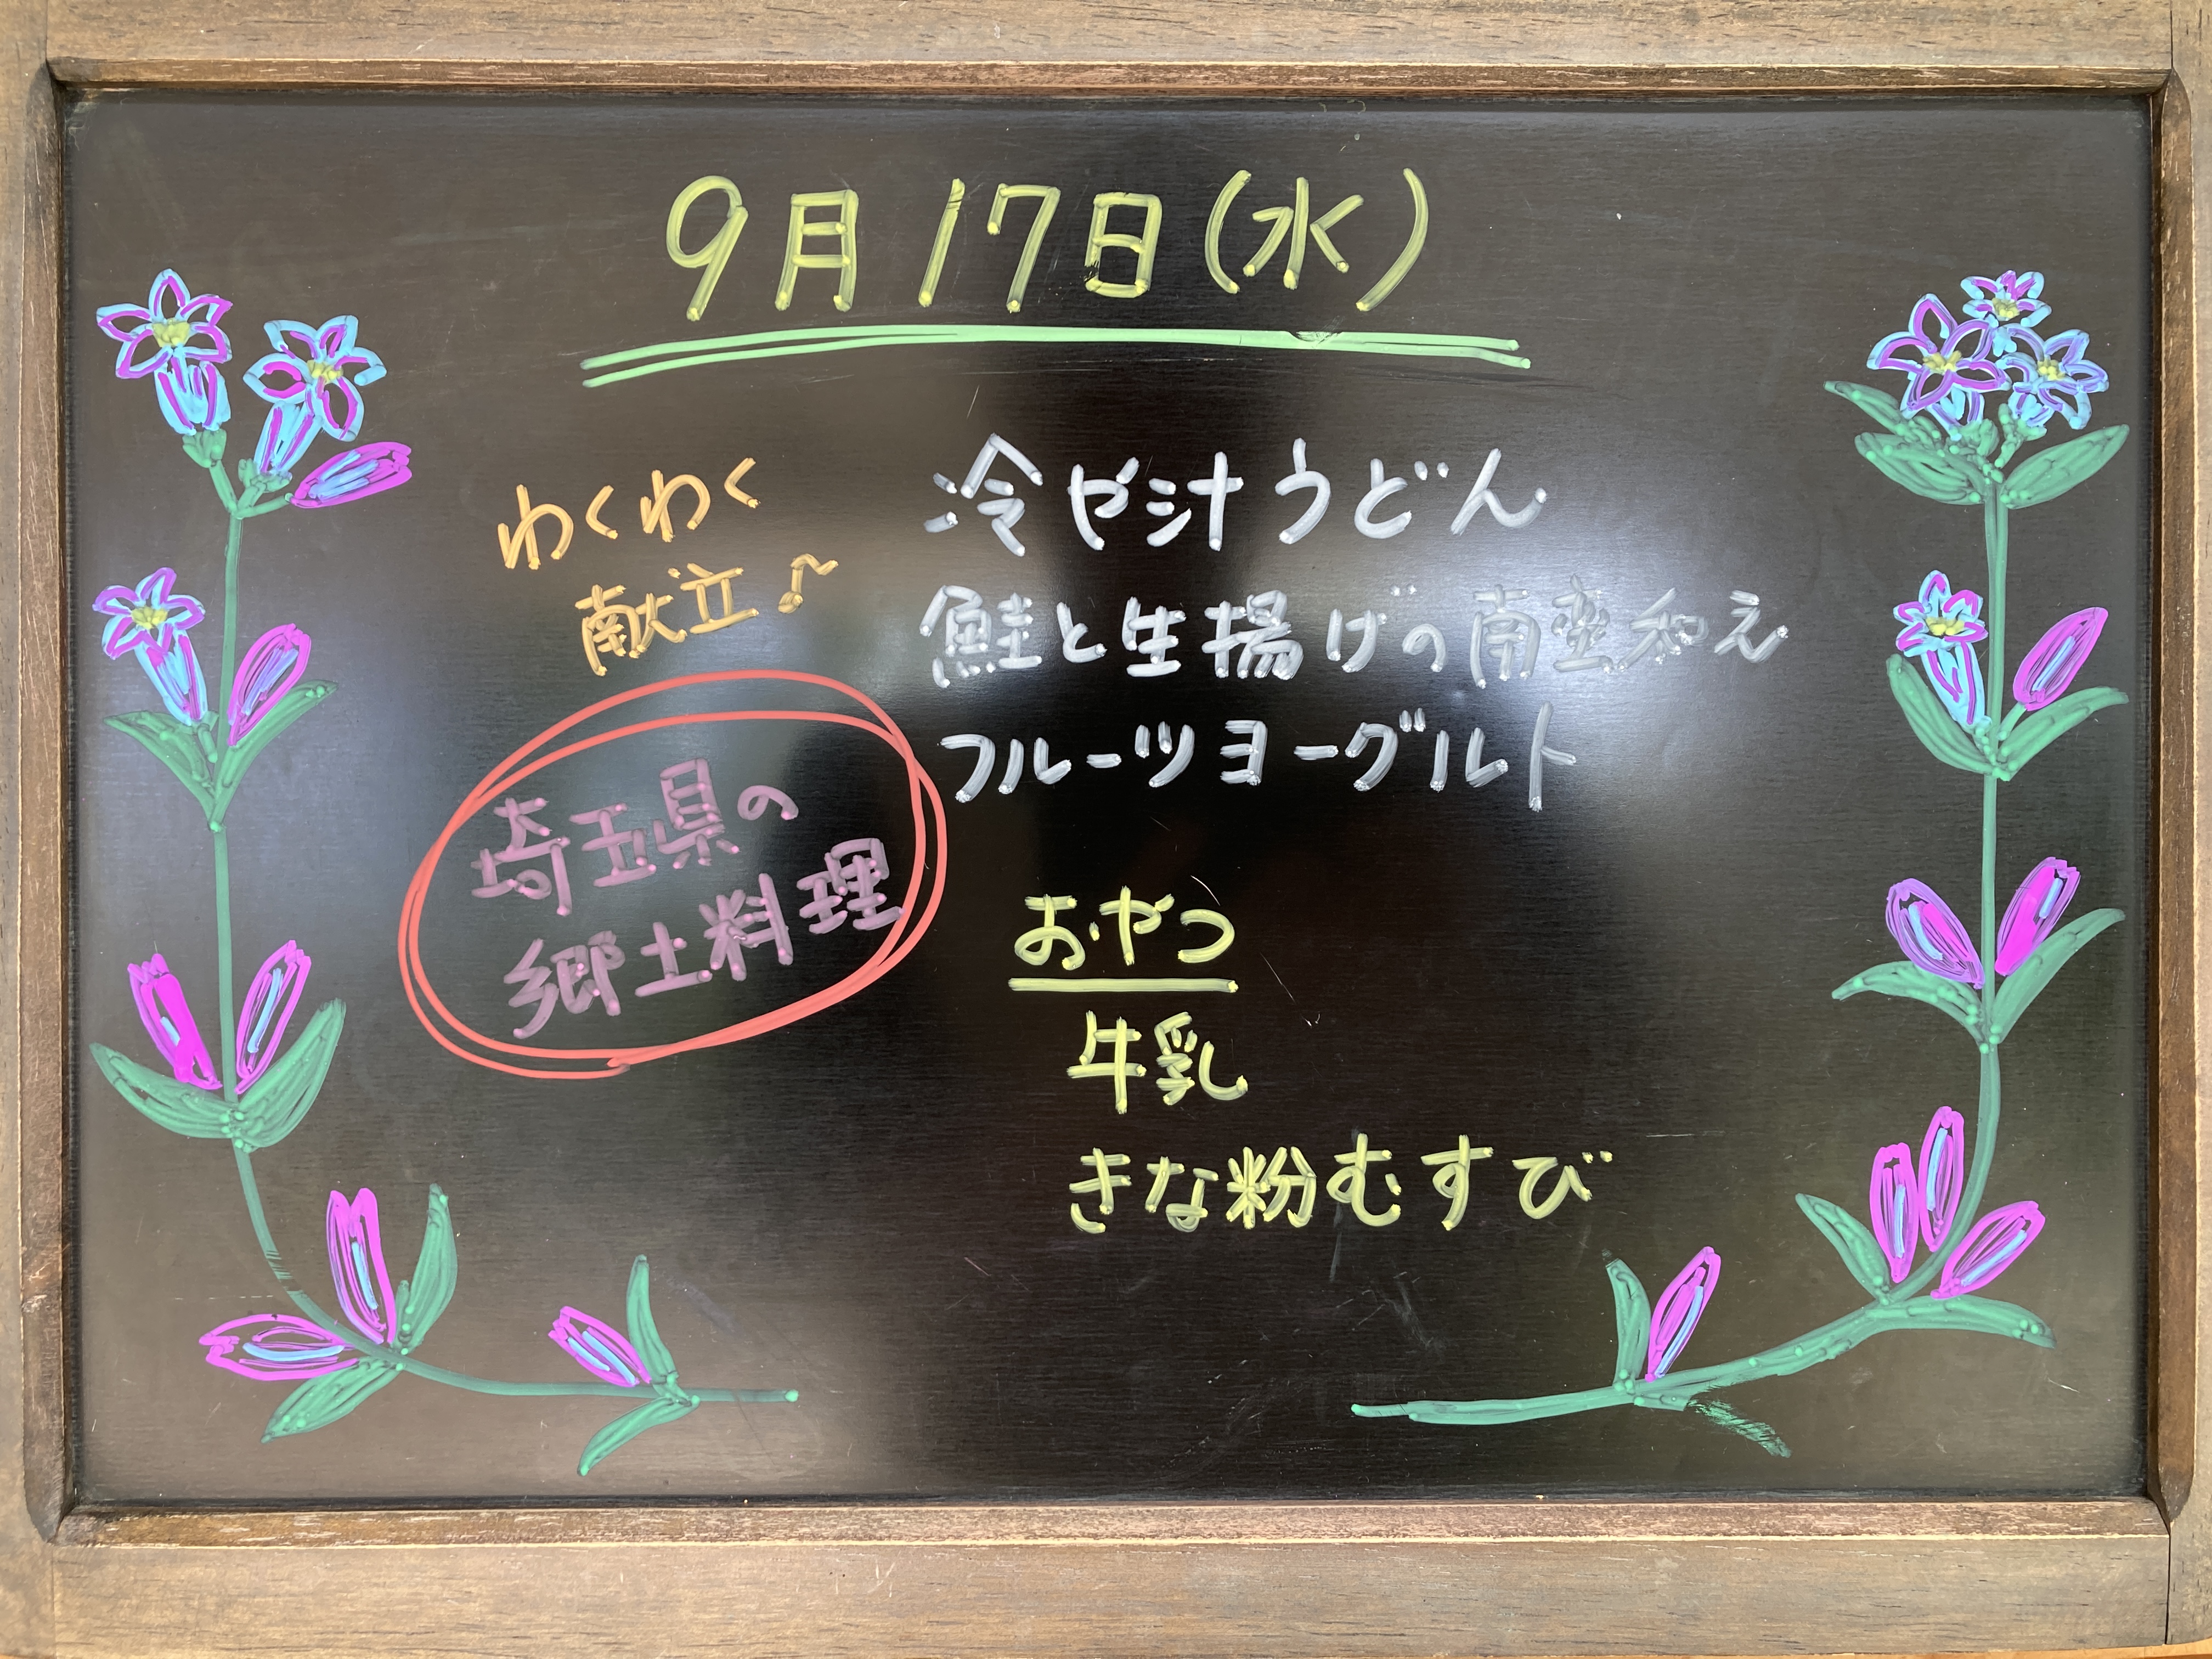 9月17日(水)
わくわく
献立♪
埼玉県の
郷土料理
冷や汁うどん
鮭と生揚げの南蛮和え
フルーツヨーグルト
おやつ
牛乳
きな粉むすび